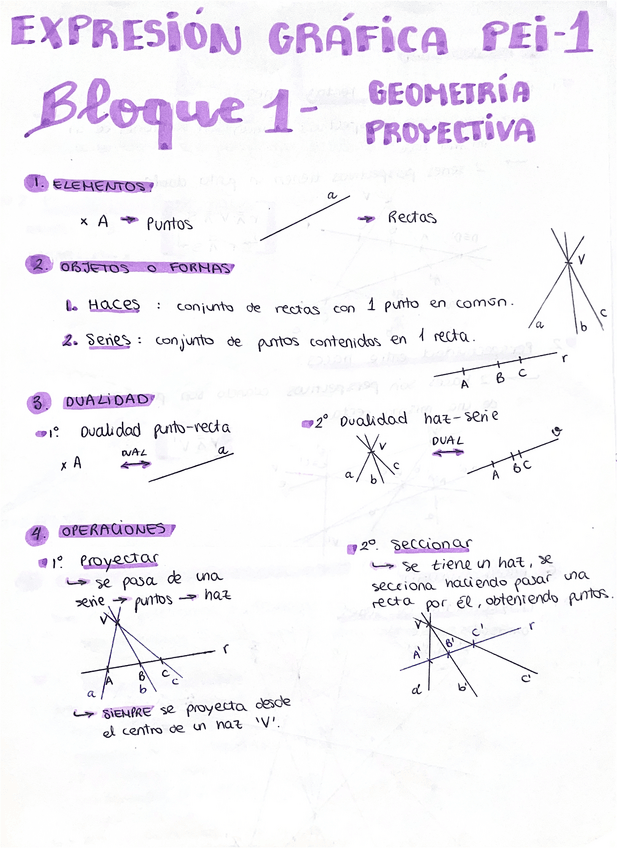 EXPRESIÓN GRÁFICA PEI-1
Bloque 1- GEOMETRÍA
PROYECTIVA
1. ELEMENTOS:
x A → Puntos
a → Rectas
2. OBJETOS O FORMAS
1. Haces : conjunto de rectas con 1 punto en común.
2. Series : conjunto de puntos contenidos en 1 recta.
V
a b c
A B C r
3. DUALIDAD
1º Dualidad punto-recta
x A DUAL a
2º Dualidad haz-serie
V
a b c
DUAL
A B C v
4. OPERACIONES
1º Proyectar
↳ se pasa de una
serie → puntos → haz
V
r
A B C
a b c
↳ SIEMPRE se proyecta desde
el centro de un haz 'V'.
2º. Seccionar
↳ Se tiene un haz, se
secciona haciendo pasar una
recta por él, obteniendo puntos.
V
A' B' C' r
b' c'